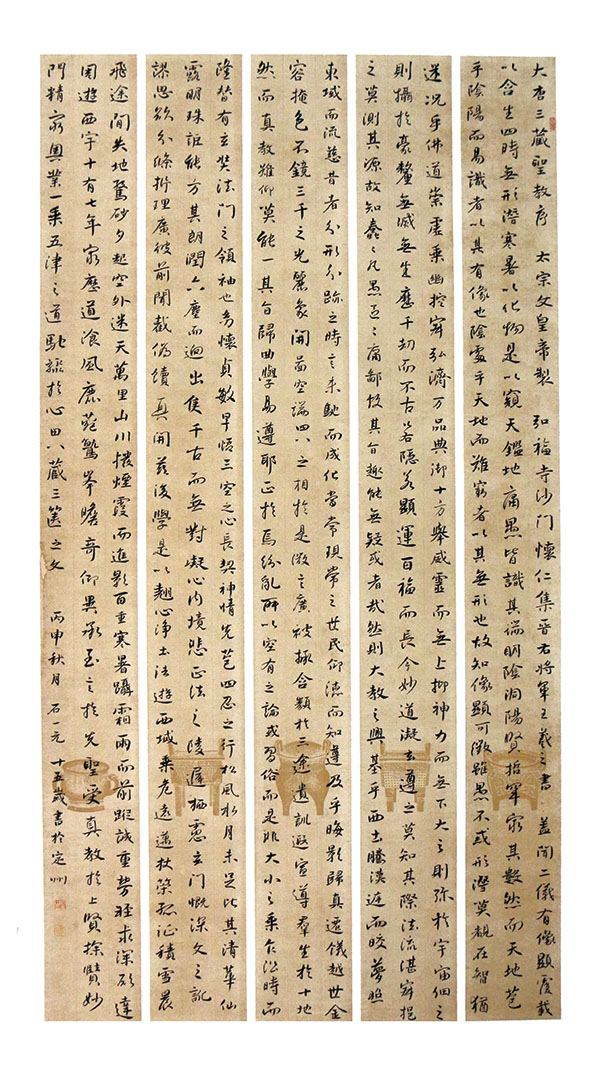 大唐三藏聖教序 太宗文皇帝製 弘福寺沙門懷仁集晉右將軍王羲之書 蓋聞二儀有像顯覆載
以含生四時無形潛寒暑以化物是以窺天鑑地庸愚皆識其端明陰洞陽賢哲罕窮其數然而天地苞
乎陰陽而易識者以其有像也陰處乎天地而難窮者以其無形也故知像顯可徵雖愚不惑形潛莫覩在智猶
迷況乎佛道崇虛乘幽控寂弘濟万品典御十方舉威靈而無上抑神力而無下大之則弥於宇宙細之
則攝於豪釐無滅無生歷千劫而不古若隱若顯運百福而長今妙道凝玄遵之莫知其際法流湛寂挹
之莫測其源故知蠢々凡愚區々庸鄙投其旨趣能無疑或者哉然則大教之興基乎西土騰漢庭而皎夢照
東域而流慈昔者分形分跡之時言未馳而成化當常現常之世民仰德而知遵及乎晦影歸真遷儀越世金
容掩色不鏡三千之光麗象開圖空端四八之相於是微言廣被拯含類於三途遺訓遐宣導羣生於十地
然而真教難仰莫能一其旨歸曲學易遵耶正於焉紛亂所以空有之論或習俗而是非大小之乘乍沿時而
隆替有玄奘法門之領袖也幼懷貞敏早悟三空之心長契神情先苞四忍之行松風水月未足比其清華仙
露明珠詎能方其朗潤六塵而迥出隻千古而無對凝心內境悲正法之陵遲栖慮玄門慨深文之訛
謬思欲分條析理廣彼前聞截偽續真開茲後學是以翹心淨土法遊西域乘危遠邁杖策孤征積雪晨
飛途間失地驚砂夕起空外迷天萬里山川撥煙霞而進影百重寒暑躡霜雨而前蹤誠重勞輕求深願達
周遊西宇十有七年窮歷道飡風鹿菀鷲峯瞻奇仰異承至言於先聖受真教於上賢探賾妙
門精窮奧業一乘五律之道馳驟於心田八藏三篋之文 丙申秋月 石一元 十五歲書於定州